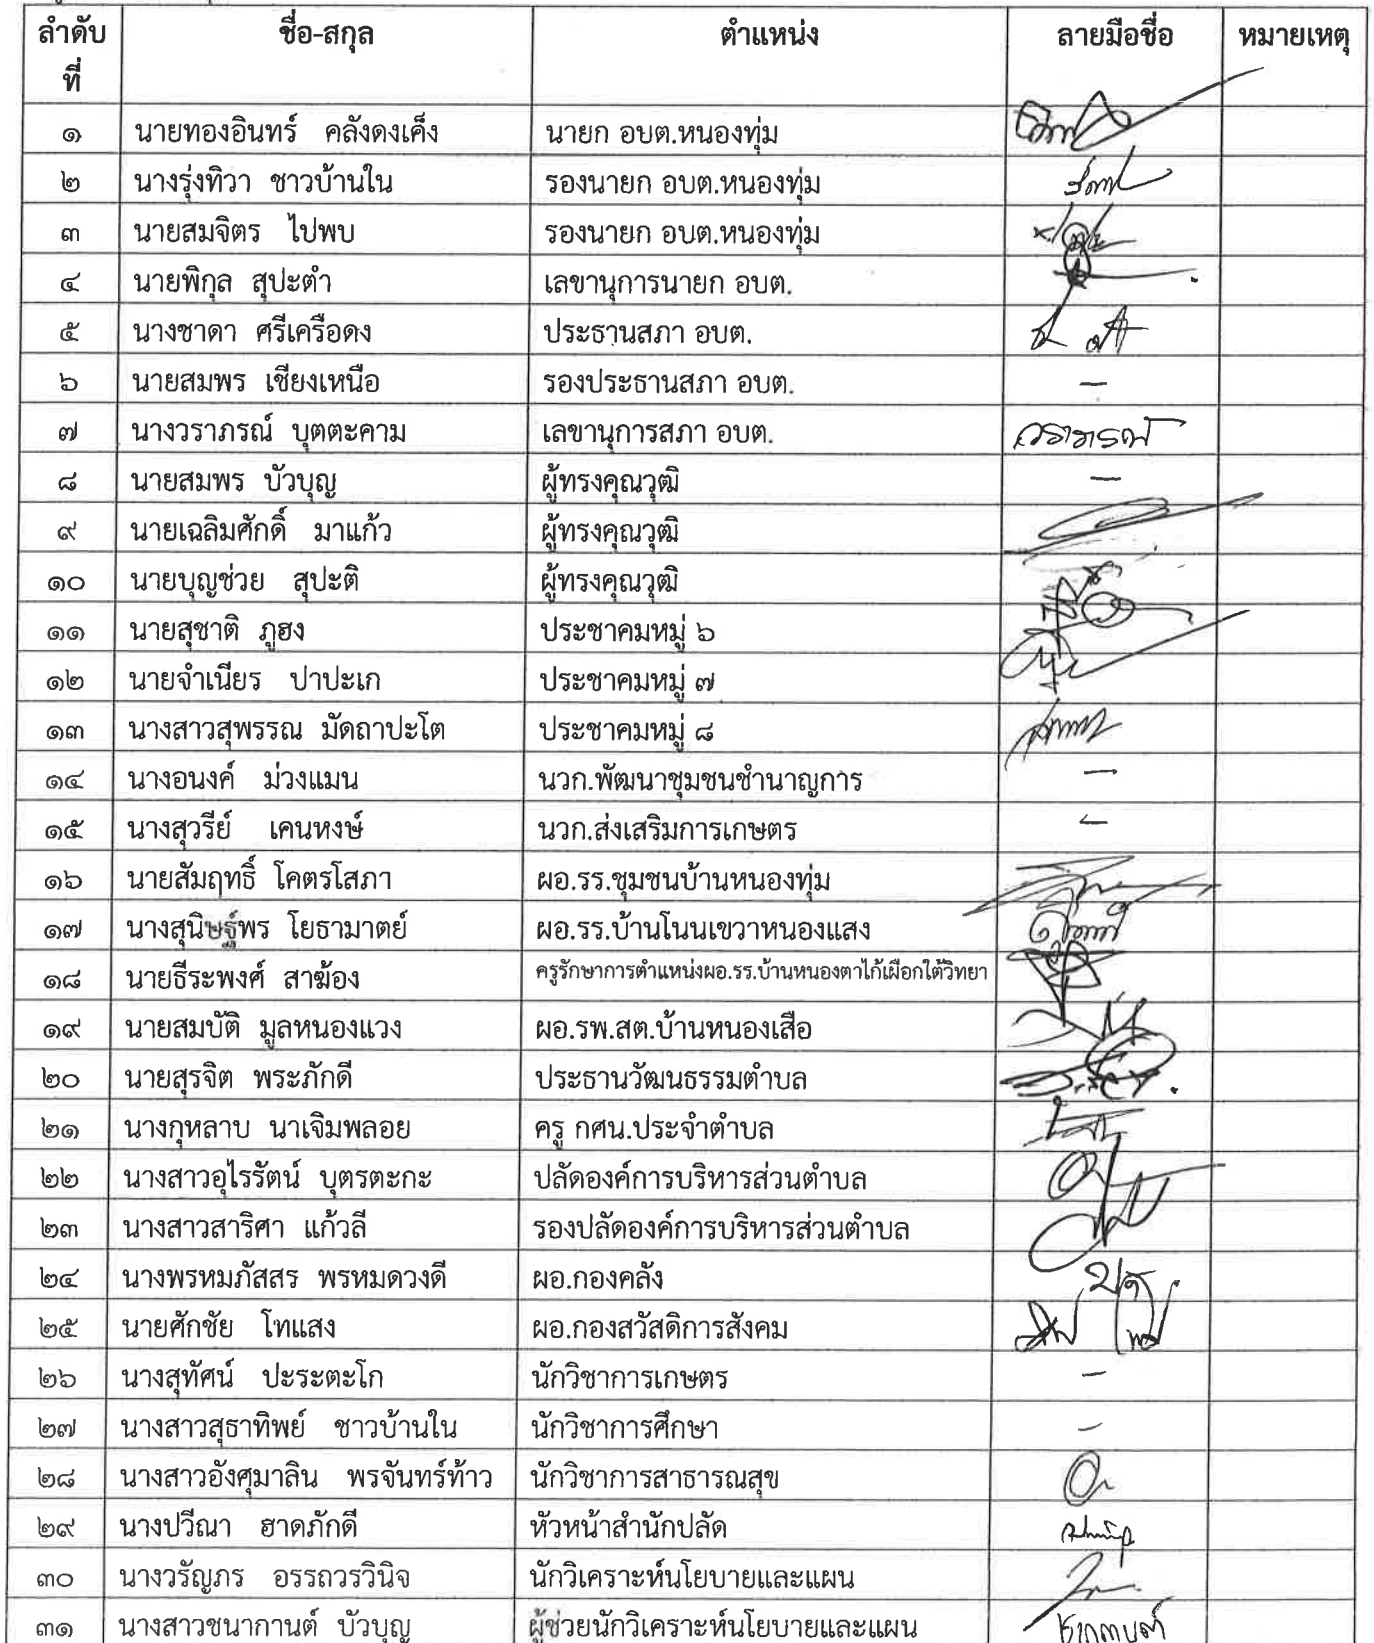 ลำดับที่ ชื่อ-สกุล ตำแหน่ง ลายมือชื่อ หมายเหตุ
๑ นายทองอินทร์ คลังดงเค็ง นายก อบต.หนองทุ่ม
๒ นางรุ่งทิวา ชาวบ้านใน รองนายก อบต.หนองทุ่ม
๓ นายสมจิตร ไปพบ รองนายก อบต.หนองทุ่ม
๔ นายพิกุล สุปะตำ เลขานุการนายก อบต.
๕ นางชาดา ศรีเครือดง ประธานสภา อบต.
๖ นายสมพร เชียงเหนือ รองประธานสภา อบต. –
๗ นางวราภรณ์ บุตตะคาม เลขานุการสภา อบต. วราภรณ์
๘ นายสมพร บัวบุญ ผู้ทรงคุณวุฒิ –
๙ นายเฉลิมศักดิ์ มาแก้ว ผู้ทรงคุณวุฒิ
๑๐ นายบุญช่วย สุปะติ ผู้ทรงคุณวุฒิ
๑๑ นายสุชาติ ภูฮง ประชาคมหมู่ ๖
๑๒ นายจำเนียร ปาปะเก ประชาคมหมู่ ๗
๑๓ นางสาวสุพรรณ มัดถาปะโต ประชาคมหมู่ ๘
๑๔ นางอนงค์ ม่วงแมน นวก.พัฒนาชุมชนชำนาญการ –
๑๕ นางสุวรีย์ เคนหงษ์ นวก.ส่งเสริมการเกษตร –
๑๖ นายสัมฤทธิ์ โคตรโสภา ผอ.รร.ชุมชนบ้านหนองทุ่ม
๑๗ นางสุนิษฐ์พร โยธามาตย์ ผอ.รร.บ้านโนนเขวาหนองแสง
๑๘ นายธีระพงศ์ สาฆ้อง ครูรักษาการตำแหน่งผอ.รร.บ้านหนองตาไก้เผือกใต้วิทยา
๑๙ นายสมบัติ มูลหนองแวง ผอ.รพ.สต.บ้านหนองเสือ
๒๐ นายสุรจิต พระภักดี ประธานวัฒนธรรมตำบล
๒๑ นางกุหลาบ นาเจิมพลอย ครู กศน.ประจำตำบล
๒๒ นางสาวอุไรรัตน์ บุตรตะกะ ปลัดองค์การบริหารส่วนตำบล
๒๓ นางสาวสาริศา แก้วลี รองปลัดองค์การบริหารส่วนตำบล
๒๔ นางพรหมภัสสร พรหมดวงดี ผอ.กองคลัง
๒๕ นายศักชัย โทแสง ผอ.กองสวัสดิการสังคม
๒๖ นางสุทัศน์ ปะระตะโก นักวิชาการเกษตร –
๒๗ นางสาวสุธาทิพย์ ชาวบ้านใน นักวิชาการศึกษา –
๒๘ นางสาวอังศุมาลิน พรจันทร์ท้าว นักวิชาการสาธารณสุข
๒๙ นางปวีณา ฮาดภักดี หัวหน้าสำนักปลัด
๓๐ นางวรัญภร อรรถวรวินิจ นักวิเคราะห์นโยบายและแผน
๓๑ นางสาวชนากานต์ บัวบุญ ผู้ช่วยนักวิเคราะห์นโยบายและแผน